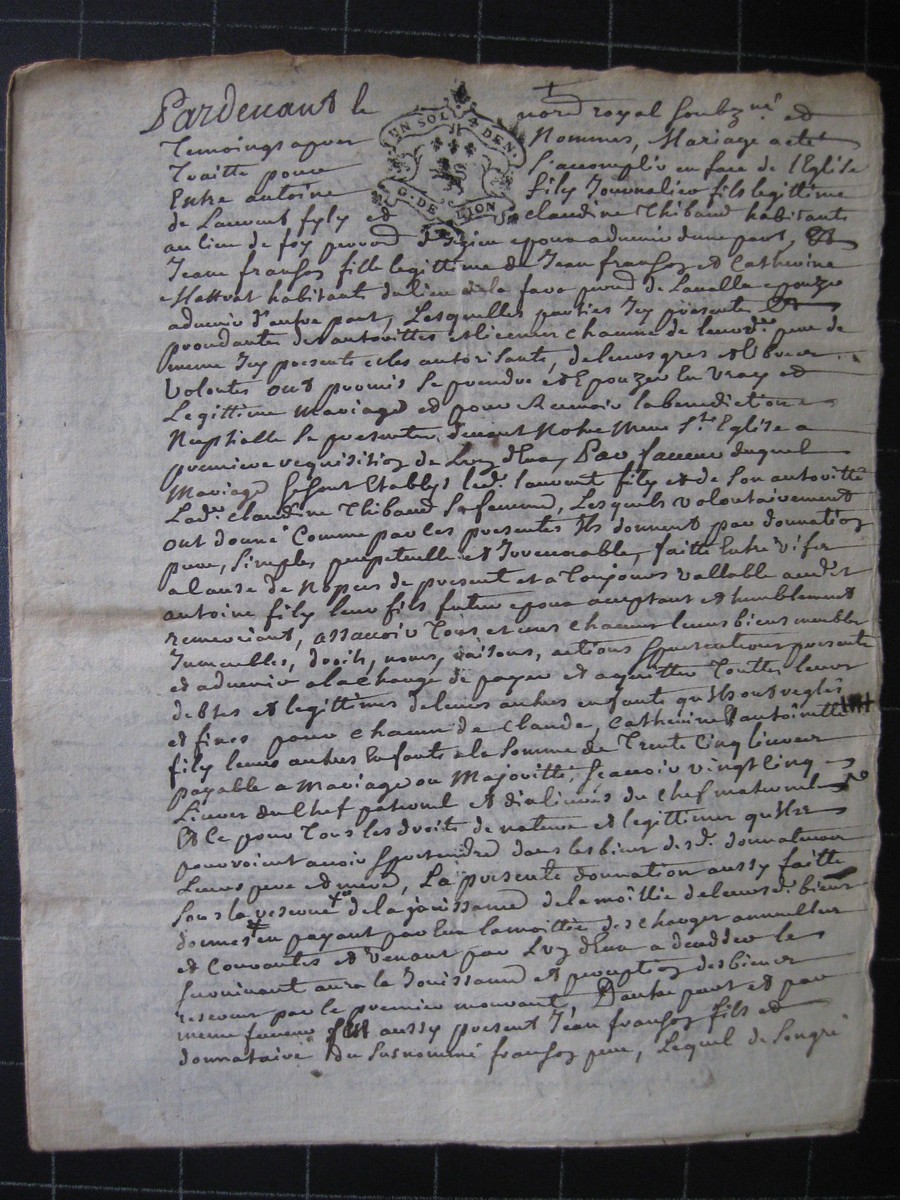 Pardevant le nore royal soubzné et
UN SOL 4 DEN.
G. DE LION
Temoings apres Nommes, Mariage a eté
Traitte pour S'accomplir en face de l'Eglise
Entre antoine fily Journalier fils legittime
de Laurent fyly et claudine Thibaud habitants
au lieu de foy d'Izieu epoux advenir d'une part, Et
Jeane franson fille legittime de Jean franson et Catherine
Mattrat habitants du lieu de la fara de Lavalla epouze
advenir d'autre part, Lesquelles parties Icy presente
proudantes des autorittes et licence chacune de leurd. pere et
mere Icy presents et les autorisants, de leurs gres et libres
Volontes ont promis se prendre et Epouzer En vray et
Legittime Mariage et pour Recevoir la benediction
Nuptialle se presenter devant Notre Mere Ste Eglise a
premiere requisition de L'un d'Eux, Par faveur duquel
Mariage se sont Etablys led. Laurent fily et de son autoritté
Lad. claudine Thibaud sa femme, Lesquels volontairement
ont donné Comme par les presentes Ils donnent par donnation
pure, simple, perpetuelle et Irrevocable, faitte Entre vifs
a cause de Nopces de present et a Toujours vallable audit
antoine fily leur fils futur epoux acceptant et humblement
remerciant, assavoir Tous et uns chacuns leurs biens meubles
Immeubles, droits, noms, raisons, actions et pretentions presents
et advenir a la charge de payer et aquitter Toutes leurs
debtes et legittimes de leurs autres enfants qu'ils ont reglés
et fixés pour chacun de Claude, Catherine & antoinette
fily leurs autres Enfants a la somme de Trente Cinq livres
payable a Mariage ou Majoritté, scavoir vingt cinq
Livres du Chef paternel et dix livres du chef maternel
Et Ce pour Tous les droits de nature et legittimes qu'ils
pourroient avoir et pretendre dans les biens desd. donnateurs
Leurs pere et mere, La presente donnation aussy faitte
sous la reserve de la jouissance de la moittié de leursd. biens
donnes en payant par Eux la moittié des charges annuelles
et Courantes et venant par L'un d'Eux a deceder le
survivant aura la Jouissance et perception des biens
reservés par le premier mourant, D'autre part et par
meme faveur aussy present Jean franson fils et
donnataire du susnommé franson pere, Lequel de son gré